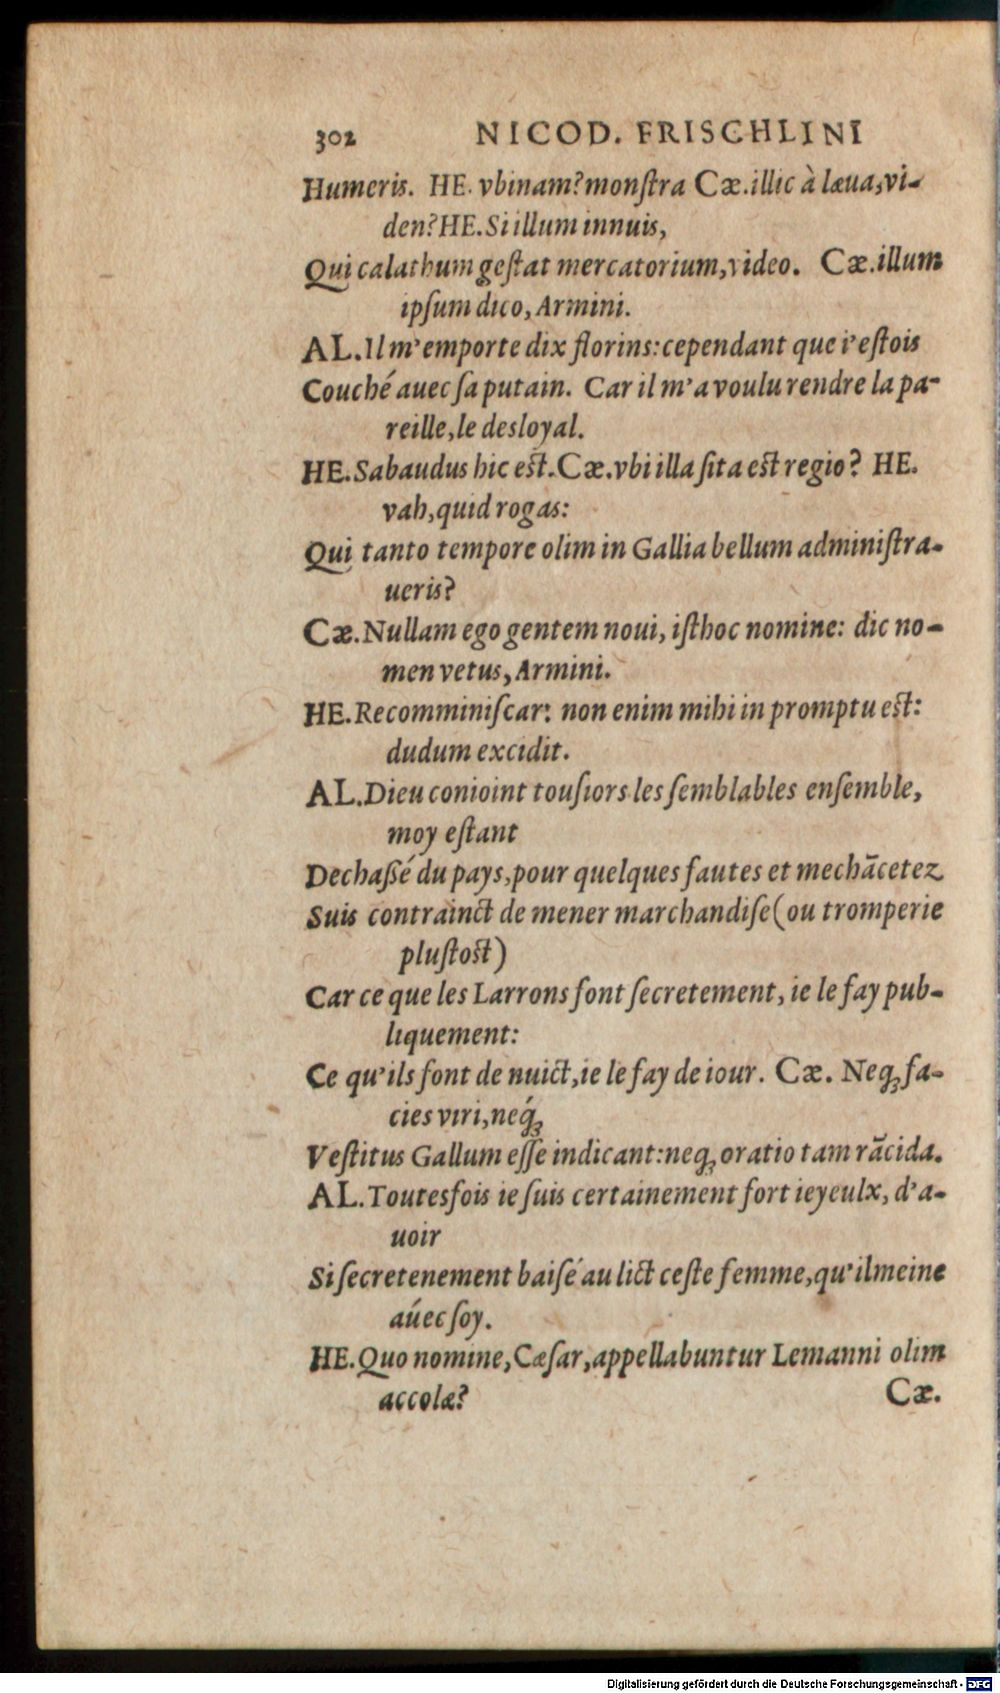 302 NICOD. FRISCHLINI
Humeris. HE. vbinam? monſtra Cæ. illic à læua, vi-
den? HE. Si illum innuis,
Qui calathum geſtat mercatorium, video. Cæ. illum
ipſum dico, Armini.
AL. Il m'emporte dix florins: cependant que i'eſtois
Couché auec ſa putain. Car il m'a voulu rendre la pa-
reille, le desloyal.
HE. Sabaudus hic eſt. Cæ. vbi illa ſita eſt regio? HE.
vah, quid rogas:
Qui tanto tempore olim in Gallia bellum adminiſtra-
ueris?
Cæ. Nullam ego gentem noui, iſthoc nomine: dic no-
men vetus, Armini.
HE. Recomminiſcar: non enim mihi in promptu eſt:
dudum excidit.
AL. Dieu conioint touſiors les ſemblables enſemble,
moy eſtant
Dechaßé du pays, pour quelques fautes et mechācetez
Suis contrainct de mener marchandiſe (ou tromperie
pluſtoſt)
Car ce que les Larrons font ſecretement, ie le fay pub-
liquement:
Ce qu'ils font de nuict, ie le fay de iour. Cæ. Neqꝫ fa-
cies viri, neq́ꝫ
Veſtitus Gallum eſſe indicant: neqꝫ oratio tam rācida.
AL. Toutesfois ie ſuis certainement fort ieyeulx, d'a-
uoir
Si ſecretenement baiſé au lict ceſte femme, qu'il meine
aúec ſoy.
HE. Quo nomine, Cæſar, appellabuntur Lemanni olim
accolæ? Cæ.
Digitalisierung gefördert durch die Deutsche Forschungsgemeinschaft - DFG